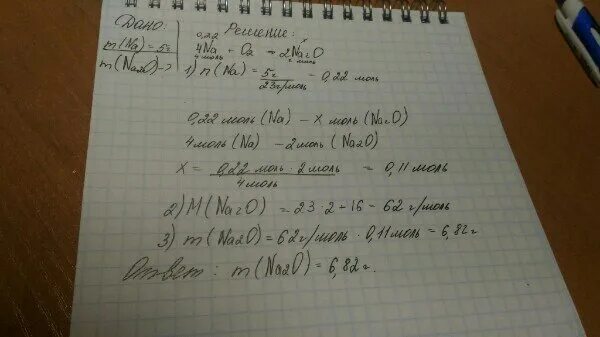 Дано:
m(Na) = 5г
m(Na2O) - ?
Решение:
0,22 x
4Na + O2 = 2Na2O
4 моль 2 моль
1) n(Na) = 5г / 23г/моль = 0,22 моль
0,22 моль (Na) - x моль (Na2O)
4 моль (Na) - 2 моль (Na2O)
X = 0,22 моль · 2 моль / 4 моль = 0,11 моль
2) M(Na2O) = 23 · 2 + 16 = 62 г/моль
3) m(Na2O) = 62 г/моль · 0,11 моль = 6,82 г
Ответ: m(Na2O) = 6,82 г.